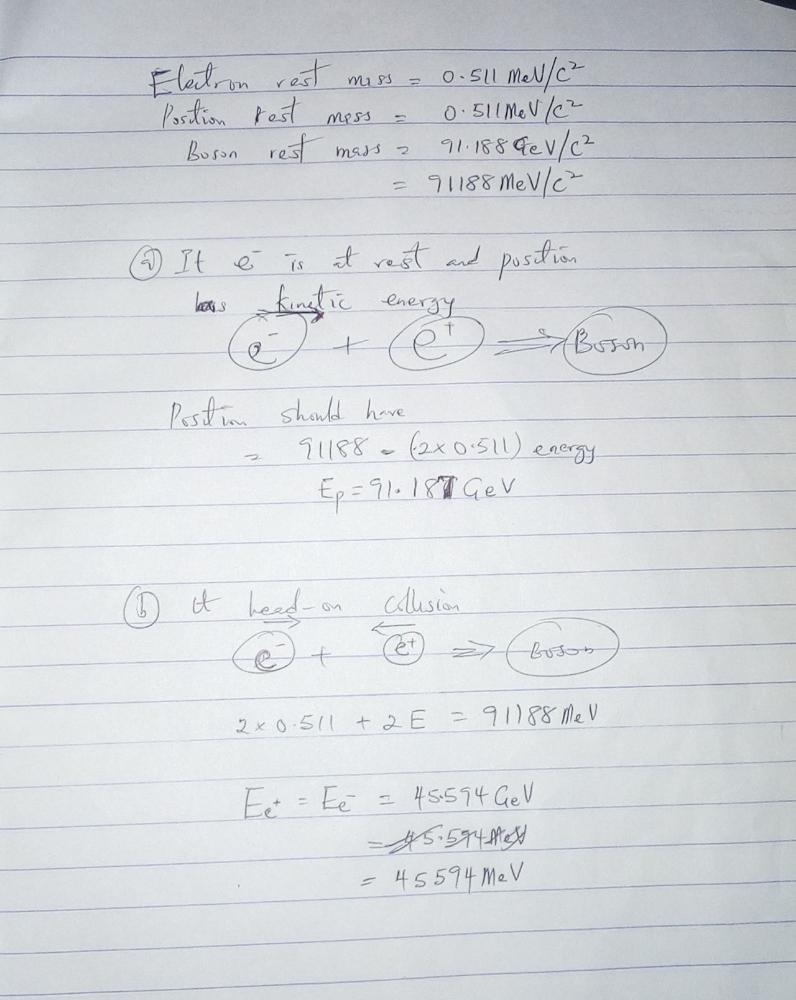 Electron rest mass = 0.511 MeV/c²
Position rest mass = 0.511 MeV/c²
Boson rest mass = 91.188 GeV/c²
= 91188 MeV/c²
(a) If e⁻ is at rest and position
has kinetic energy
e⁻ + e⁺ ⇒ Boson
Position should have
= 91188 - (2×0.511) energy
Ep = 91.187 GeV
(b) If head-on collision
e⁻ + e⁺ ⇒ Boson
2×0.511 + 2E = 91188 MeV
Ee⁺ = Ee⁻ = 45.594 GeV
= 45.594 MeV
= 45594 MeV